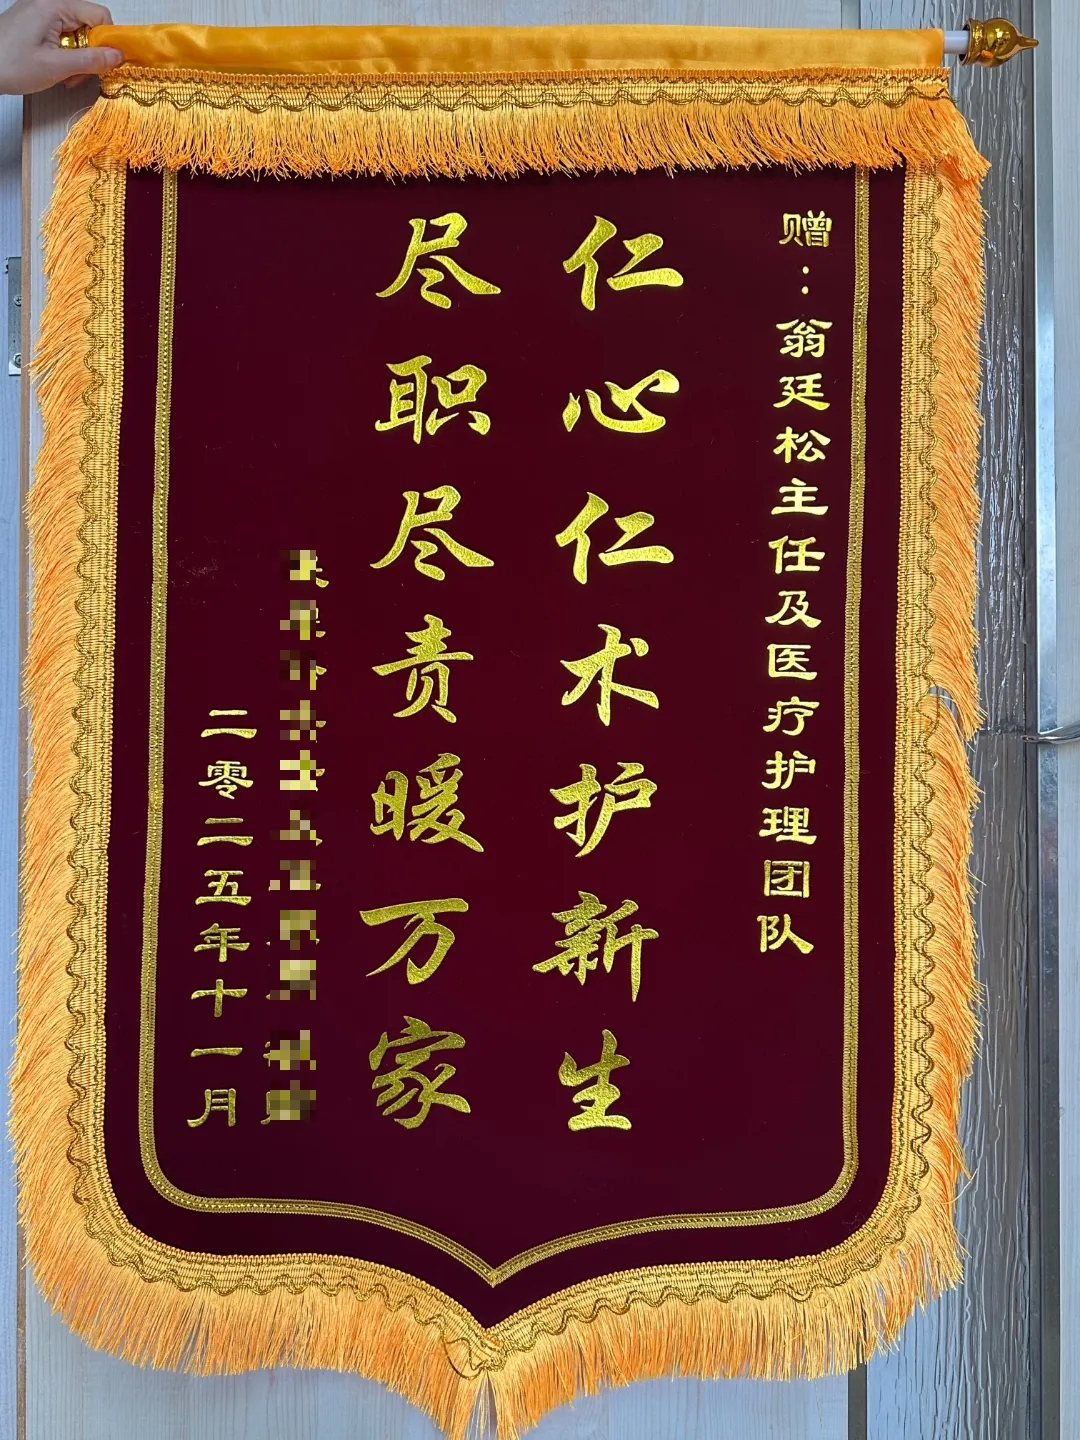 赠：翁廷松主任及医疗护理团队
仁心仁术护新生
尽职尽责暖万家
二零二五年十一月